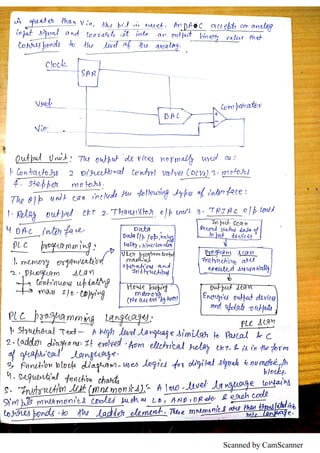 is greater than Vin, the bit is reset. An ADC accepts an analog
input signal and converts it into an output binary value that
corresponds to the level of the analog.
Clock
SAR
Vref
DAC
Comparator
Vin
Output Unit: The output devices normally used are:
1. Contactors 2. Directional Control Valves (DCVs) 3. motors
4. Stepper motors.
The O/p unit can include the following types of interface:
1. Relay output CKT 2. Transistor O/p unit 3. TRIAC O/p unit
4. DAC interface
PLC programming:
1. memory organization
2. program scan
→ Continuous updating
→ mass I/O copying
Data
Data I/p, O/p, timing
relay, sine/counter
User program stored
machine
operation and
instruction
House keeping
memory
Input scan
Record status data of
input devices
Program scan
Instructions are
executed sequentially
Output scan
Energies output devices
and update outputs
PLC scan
PLC programming Languages:
1. Structural Text - A high level language similar to Pascal & C
2. Ladder diagram: It evolved from electrical relay CKT & is in the form
of graphical language.
3. Function block diagram - uses logics for digital signals to numeric fn
blocks.
4. Sequential function charts
5. Instruction list (mnemonics): A low-level language contains
simple mnemonics codes such as LD, AND, OR do & each code
corresponds to the ladder element. These mnemonics are then translated in
m/c language.
Scanned by CamScanner